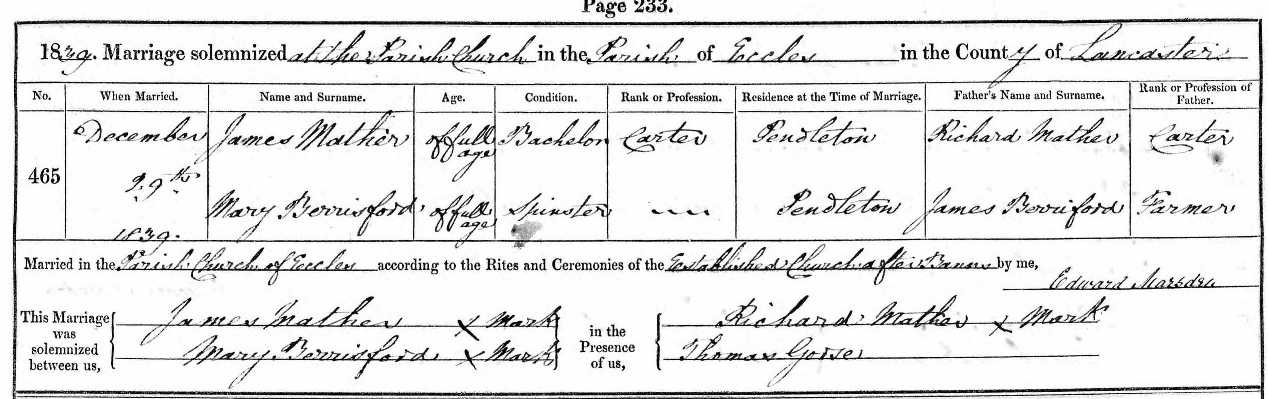 Page 233.
1839. Marriage solemnized at the Parish Church in the Parish of Eccles in the County of Lancaster
No. When Married. Name and Surname. Age. Condition. Rank or Profession. Residence at the Time of Marriage. Father's Name and Surname. Rank or Profession of Father.
465 December 29th 1839. James Mather of full age Bachelor Carter Pendleton Richard Mather Carter
Mary Berrisford of full age Spinster ---- Pendleton James Berrisford Farmer
Married in the Parish Church of Eccles according to the Rites and Ceremonies of the Established Church after Banns by me,
Edward Marsden
This Marriage was solemnized between us, James Mather X Mark
Mary Berrisford X Mark
in the Presence of us, Richard Mather X Mark
Thomas Goose